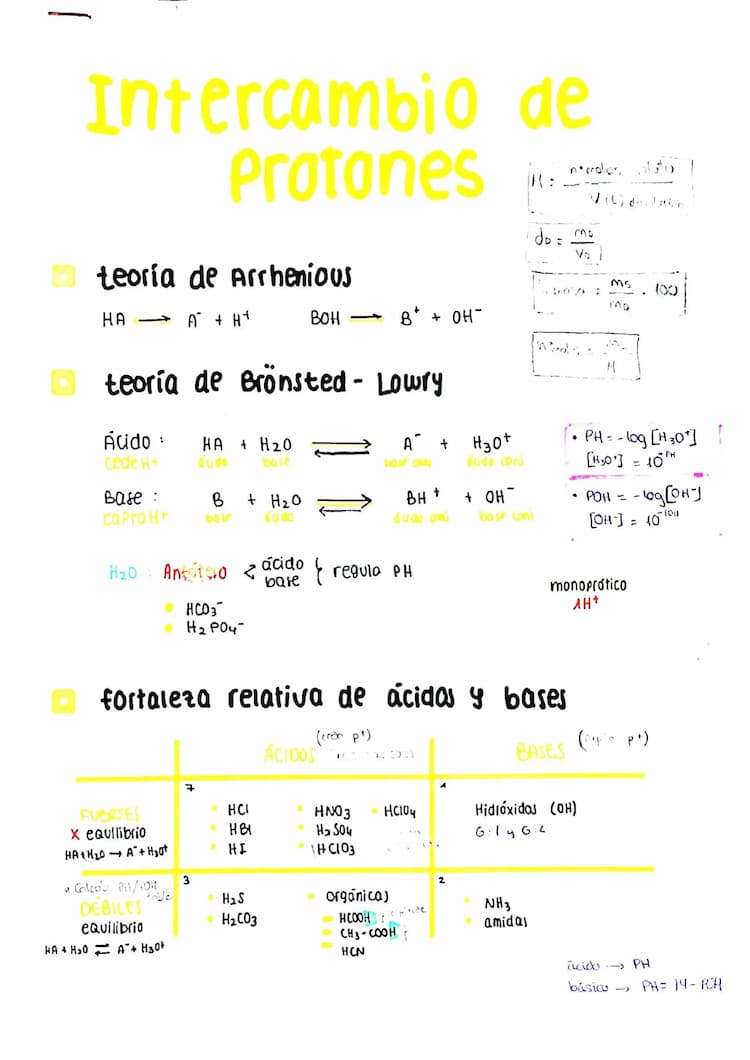 Intercambio de
Protones
M = n° moles soluto
V (L) disolución
dD = mD
VD
mS . 100
mD
teoría de Arrhenious
HA → A⁻ + H⁺ BOH → B⁺ + OH⁻
n° moles =
M
teoría de Brönsted - Lowry
Ácido : HA + H₂O ⇄ A⁻ + H₃O⁺
cede H⁺ ácido base base conj ácido conj
Base : B + H₂O ⇄ BH⁺ + OH⁻
capta H⁺ base ácido ácido conj base conj
• PH = -log [H₃O⁺]
[H₃O⁺] = 10⁻ᴾᴴ
• POH = -log[OH⁻]
[OH⁻] = 10⁻ᴾᴼᴴ
H₂O : Anfótero < ácido base { regula PH
HCO₃⁻
H₂PO₄⁻
monoprótico
1H⁺
fortaleza relativa de ácidos y bases
(ceden p⁺)
ÁCIDOS
BASES (captan p⁺)
FUERTES
X equilibrio
HA + H₂O → A⁻ + H₃O⁺
7
HCl HNO₃ HClO₄
HBr H₂SO₄
HI HClO₃
1
Hidróxidos (OH)
G.1 y G.2
Calculo PH/POH
DÉBILES
equilibrio
HA + H₂O ⇄ A⁻ + H₃O⁺
3
H₂S
H₂CO₃
orgánicas
HCOOH
CH₃-COOH
HCN
2
NH₃
amidas
ácido → PH
básico → PH = 14 - POH